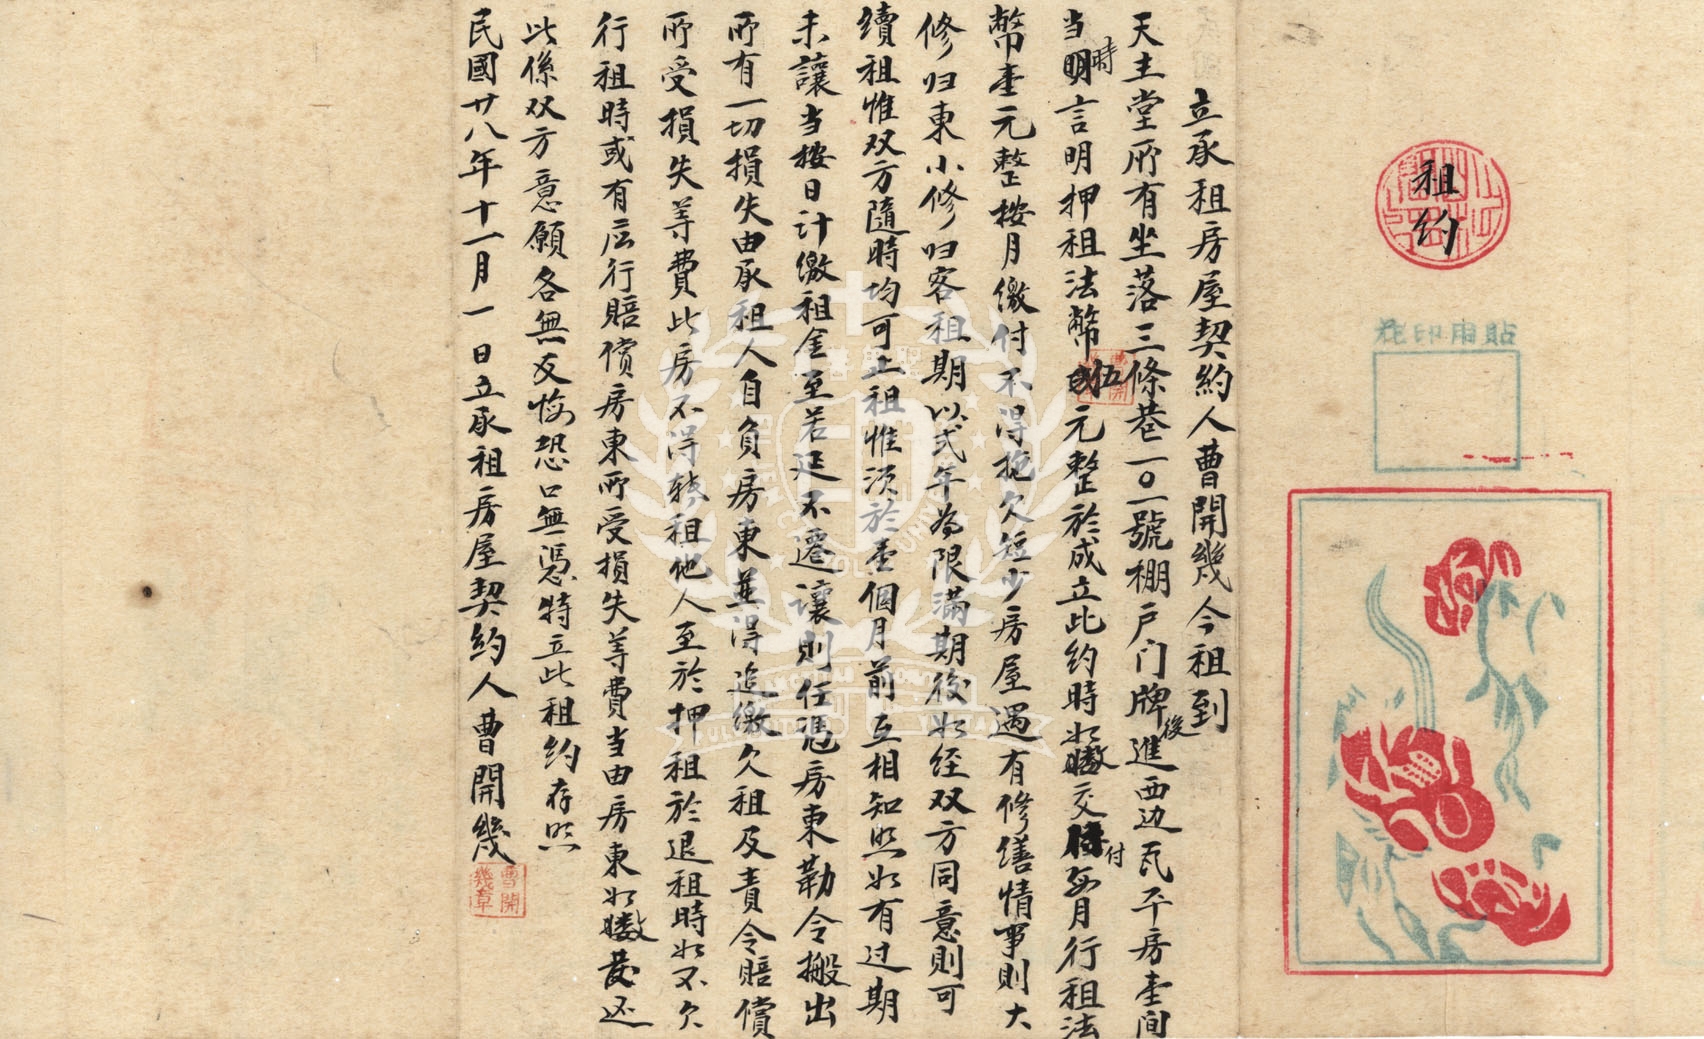 租约
貼用印花
立承租房屋契約人曹開幾今租到
天主堂所有坐落三條巷一〇一號棚戶门牌後進西边瓦平房壹间
当時明言明押租法幣伍元整於成立此约時如數交付每月行租法
幣壹元整按月繳付不得拖欠短少房屋遇有修缮情事則大
修归東小修归客租期以弍年為限滿期後如经双方同意則可
續租惟双方隨時均可止租惟须於壹個月前互相知照如有过期
未讓当按日计繳租金至若延不遷讓則任憑房東勒令搬出
所有一切損失由承租人自負房東並得追繳欠租及責令賠償
所受損失等費此房不得转租他人至於押租於退租時如不欠
行租時或有应行賠償房東所受損失等費当由房東如數发还
此係双方意願各無反悔恐口無憑特立此租约存照
民國廿八年十一月一日立承租房屋契约人曹開幾
曹開幾章